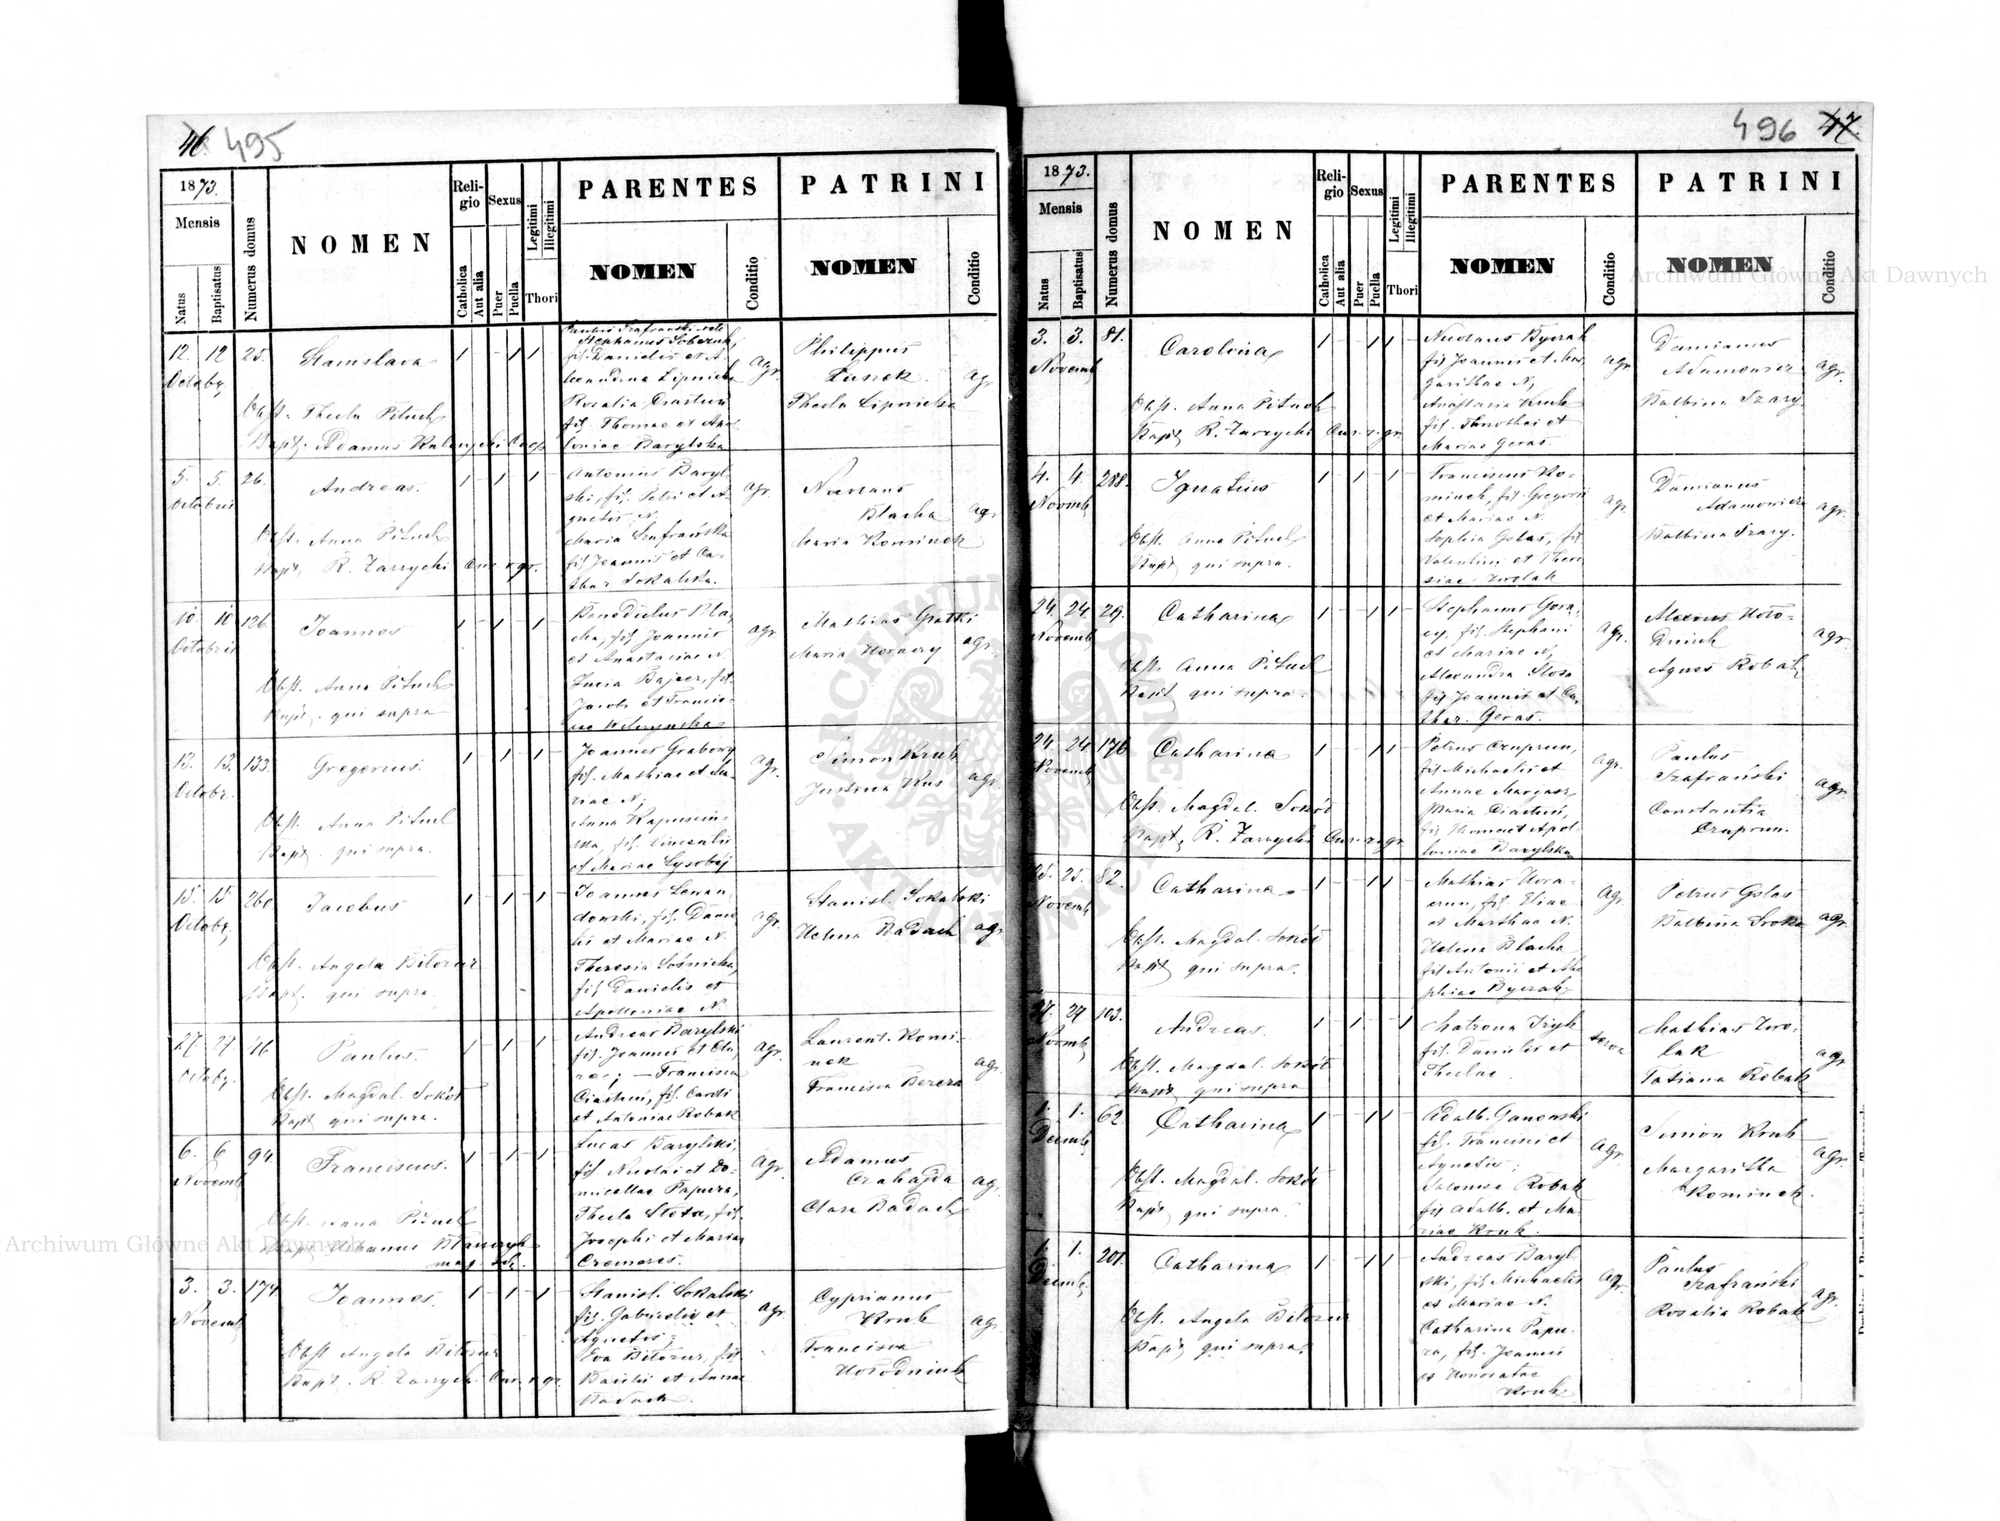 46. 495
1873.
Mensis
Natus
Baptisatus
Numerus domus
NOMEN
Religio
Catholica
Aut alia
Sexus
Puer
Puella
Legitimi
Illegitimi
Thori
PARENTES
NOMEN
Conditio
PATRINI
NOMEN
Conditio
12. 12 25.
Octobr
Stanislava
Obst. Thecla Pituch
Bapt. Adamus
fil. Danielis et A-
lexandrae Lipnicka
Rosalia Ciasteń
fil. Thomae et Apo-
loniae Barylska
agr.
Philippus
Thecla Lipnicka
agr
5. 5. 26.
Octobris
Andreas.
Obst. Anna Pituch
Bapt. R. Zarzycki Cur. r. gr.
Antonius Baryl-
ski, fil. Petri et A-
gnetis N.
Maria Szafrańska
fil Joannis et Ca-
thar Sokalska.
agr.
Blacha
Maria Kominek
agr
10. 10 126
Octobris
Joannes
Obst. Anna Pituch
Bapt. qui supra
Benedictus Bla-
cha, fil. Joannis
et Anastasiae N.
Lucia Bajcar, fil.
Jacobi et Francis-
agr
Mathias
Maria
agr.
13. 13. 133.
Octobr.
Gregorius.
Obst. Anna Pituch
Bapt. qui supra.
Joannes Grabowy
fil. Mathiae et Ma-
riae N,
Anna Kapuscin-
ska, fil. Vincentii
et Mariae Lysobej
agr.
Simon Kruk
Justina Kus
agr
15. 15 260
Octobr,
Jacobus
Obst. Angela Bitorur
Bapt. qui supra
Joannes Lewan-
dowski, fil. Danie-
lis et Mariae N.
Theresia Sośnicka,
fil Danielis et
Apolloniae N.
agr.
Stanisl. Sokalski
Helena Badach
agr
27. 27. 46
Octobr.
Paulus.
Obst. Magdal. Sokół
Bapt qui supra.
Andreas Barylski
fil. Joannis et Cla-
rae; — Francisca
Ciasteń, fil. Caroli
et Antoniae Robak
agr.
Laurent. Komi-
nek
Francisca Bereza
agr.
6. 6 94.
Novemb
Franciscus.
Obst. Anna Pituch
Lucas Barylski,
fil. Nicolai et Do-
micellae Papuza,
Thecla Slota, fil.
Josephi et Mariae
Cremeres.
agr.
Adamus
Czahajda
Clara Badach
agr.
3. 3. 174
Novemb
Joannes.
Obst Angela Bitorur
Bapt. R. Zarzycki Cur. r. gr.
Stanisl. Sokalski
fil. Gabrielis et
Agnetis;
Eva Bitorur, fil.
Basilii et Annae
Badach.
agr.
Cyprianus
Kruk
Francisca
Horodniuk
agr.
496 47.
1873.
Mensis
Natus
Baptisatus
Numerus domus
NOMEN
Religio
Catholica
Aut alia
Sexus
Puer
Puella
Legitimi
Illegitimi
Thori
PARENTES
NOMEN
Conditio
PATRINI
NOMEN
Conditio
3. 3. 81.
Novemb
Carolina
Obst. Anna Pituch
Bapt R. Zarzycki Cur. r. gr.
Nicolaus Bycrak
fil Joannis et Mar-
garithae N,
Anastasia Kruk
fil. Timothei et
Mariae Geras.
agr
Damianus
Adamowicz
Balbina Szary.
agr.
4. 4. 288.
Novemb
Ignatius
Obst. Anna Pituch
Bapt qui supra.
Franciscus Ko-
minek, fil. Gregorii
et Mariae N.
Sophia Golas, fil
Valentini et There-
siae Zwolak
agr
Damianus
Adamowicz
Balbina Szary.
agr.
24. 24. 29.
Novemb
Catharina
Obst. Anna Pituch
Bapt qui supra.
Stephanus Gora-
cy, fil. Stephani
et Mariae N,
Alexandra Slota
fil Joannis et Ca-
thar. Geras.
agr.
Alexius Horo-
dniuk
Agnes Robak
agr.
24. 24 176
Novemb
Catharina
Obst. Magdal. Sokół
Bapt. R. Zarzycki Cur. r. gr
Petrus Czuprun,
fil Michaelis et
Annae Margasz,
Maria Ciasteń,
fil Thomae et Apol-
loniae Barylska
agr.
Paulus
Szafrański
Constantia
Czuprun.
agr
25. 25. 82.
Novemb
Catharina
Obst. Magdal. Sokół
Bapt qui supra.
Mathias Hora-
czun, fil. Eliae
et Marthae N.
Helena Blacha
fil Antonii et Ale-
phiae Bycrak
agr
Petrus Golas
Balbina Sroka
agr.
27. 27 103.
Novemb
Andreas.
Obst. Magdal. Sokół
Bapt qui supra
Matrona Iryk
fil. Danielis et
Theclae.
serva
Mathias Zwo-
lak
Tatiana Robak
agr
1. 1. 62.
Decemb
Catharina
Obst. Magdal. Sokół
Bapt qui supra.
Adalb. Ganowski
fil. Francisci et
Agnetis;
Salomea Robak
fil Adalb. et Ma-
riae Kruk.
agr.
Simion Kruk
Margaritha
Kominek.
agr.
1. 1. 201.
Decemb
Catharina
Obst. Angela Bitorur
Bapt qui supra.
Andreas Baryl-
ski, fil Michaelis
et Mariae N.
Catharina Papu-
za, fil. Joannis
et Honoratae
Kruk
agr.
Paulus
Szafrański
Rosalia Robak
agr.
Archiwum Główne Akt Dawnych
Archiwum Główne Akt Dawnych